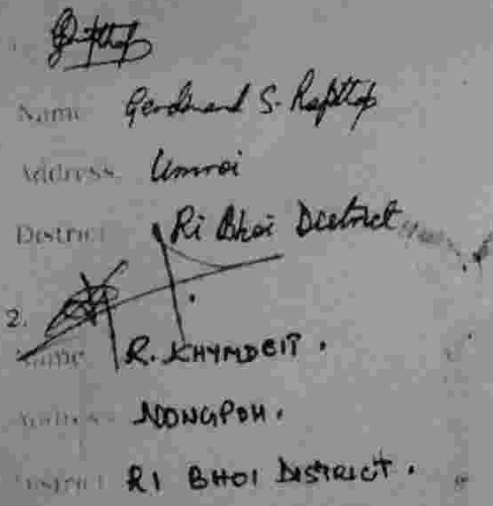 Name Gerdinand S. Rapthap
Address Umroi
District Ri Bhoi District
2.
Name R. KHYMDEIT.
Address NONGPOH.
District RI BHOI DISTRICT.